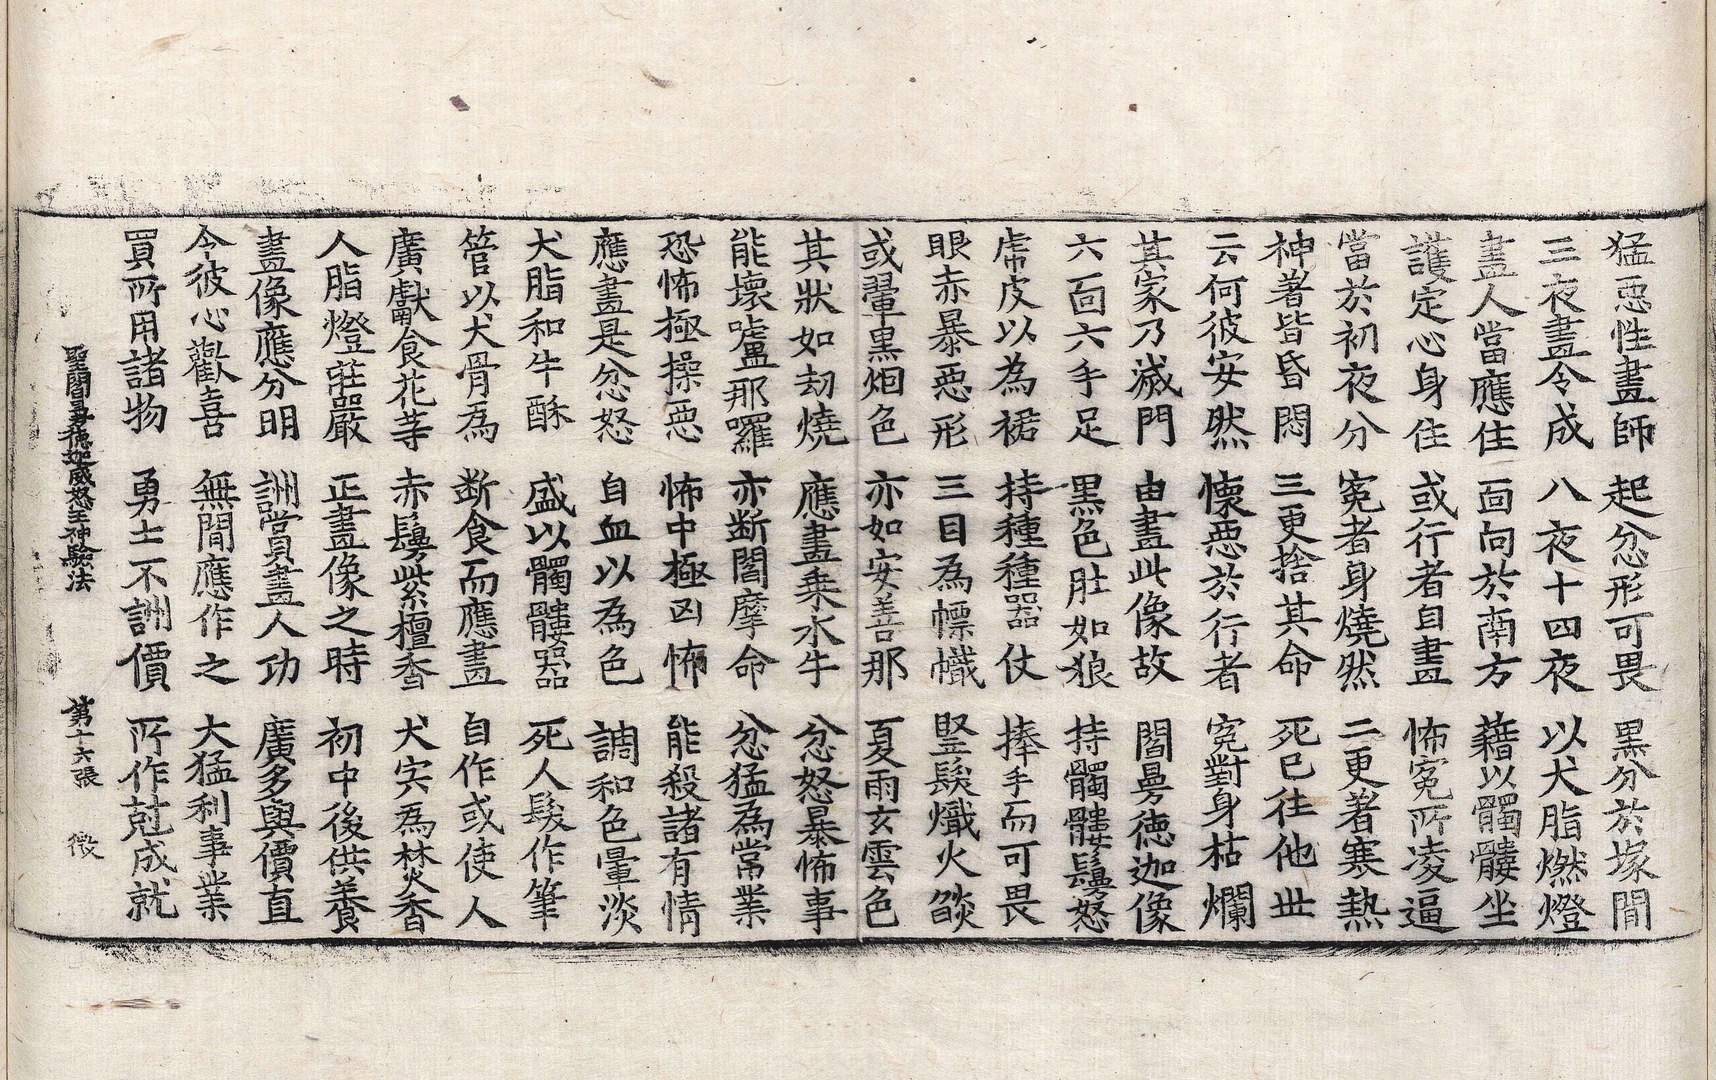 猛惡性畫師 起忿形可畏 黑分於塚間
三夜畫令成 八夜十四夜 以犬脂燃燈
畫人當應住 面向於南方 藉以髑髏坐
護定心身住 或行者自畫 怖寃所凌逼
當於初夜分 寃者身燒然 二更著寒熱
神著皆昏悶 三更捨其命 死已往他世
云何彼安然 懷惡於行者 寃對身枯爛
其家乃滅門 由畫此像故 閻曼德迦像
六面六手足 黑色肚如狼 持髑髏鬘怒
虎皮以為裙 持種種器仗 捧手而可畏
眼赤暴惡形 三目為幖幟 竪髮熾火焰
或暈黑烟色 亦如安善那 夏雨玄雲色
其狀如劫燒 應畫乘水牛 忿怒暴怖事
能壞嚧那囉 亦斷閻摩命 忿猛為常業
恐怖極操惡 怖中極凶怖 能殺諸有情
應畫是忿怒 自血以為色 調和色暈淡
犬脂和牛酥 盛以髑髏器 死人髮作筆
管以犬骨為 斷食而應畫 自作或使人
廣獻食花等 赤鬘紫檀香 犬肉為焚香
人脂燈莊嚴 正畫像之時 初中後供養
畫像應分明 詶賞畫人功 廣多與價直
令彼心歡喜 無間應作之 大猛利事業
買所用諸物 勇士不詶價 所作尅成就
聖閻曼德迦威怒王神驗法 第十六張 徵